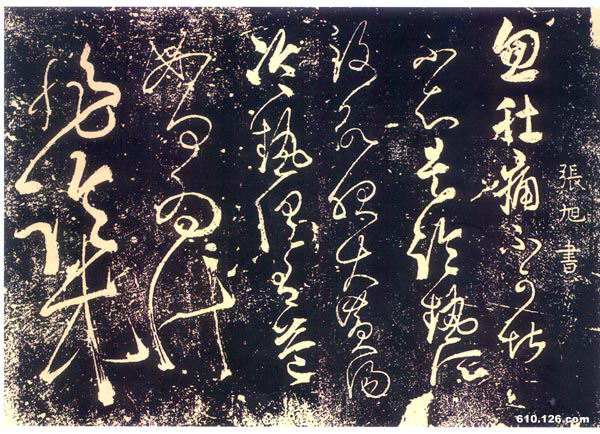 張旭書
忽肚痛不可堪
不知是冷熱所
致欲服大黃湯
冷熱俱有益
如何為計
非臨床
610.126.com